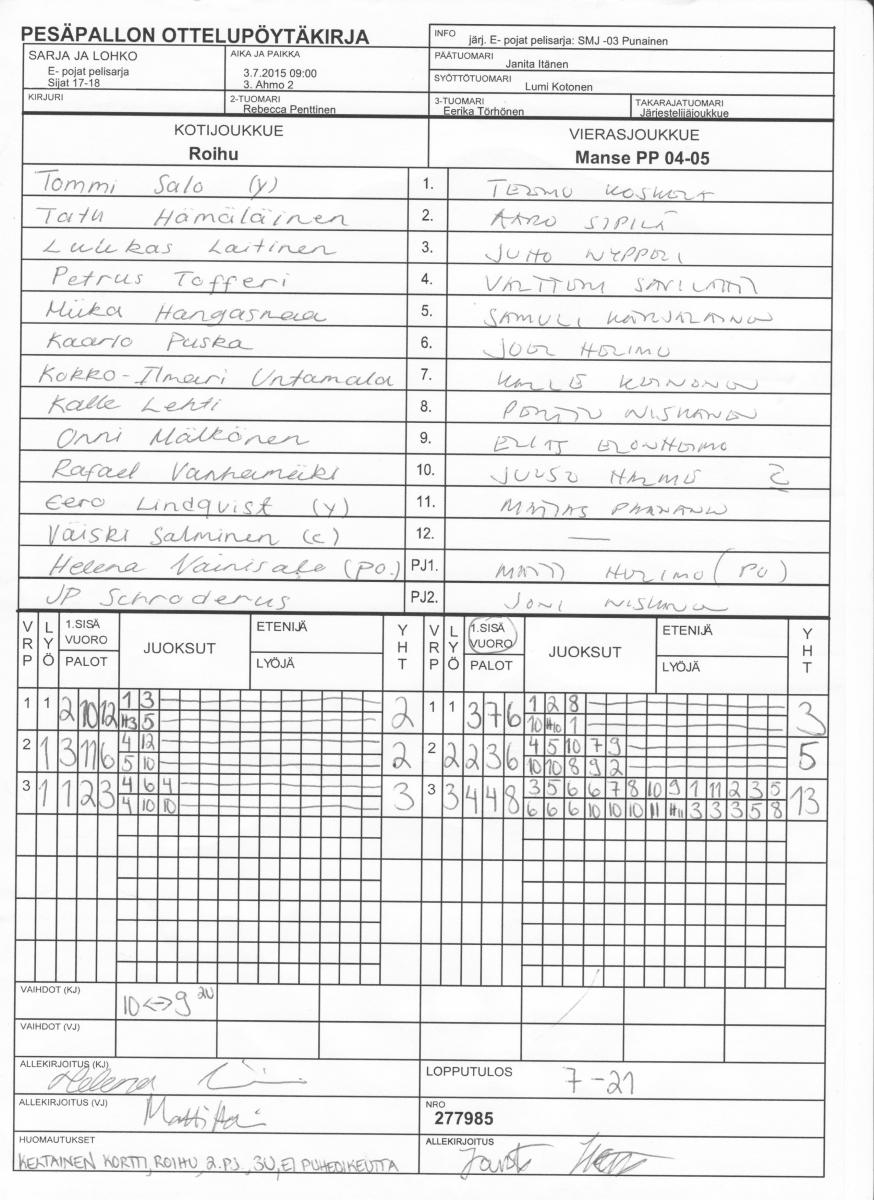 PESÄPALLON OTTELUPÖYTÄKIRJA
INFO järj. E- pojat pelisarja: SMJ -03 Punainen
SARJA JA LOHKO
E- pojat pelisarja
Sijat 17-18
AIKA JA PAIKKA
3.7.2015 09:00
3. Ahmo 2
PÄÄTUOMARI
Janita Itänen
SYÖTTÖTUOMARI
Lumi Kotonen
KIRJURI
2-TUOMARI
Rebecca Penttinen
3-TUOMARI
Eerika Törhönen
TAKARAJATUOMARI
Järjestelijäjoukkue
KOTIJOUKKUE
Roihu
VIERASJOUKKUE
Manse PP 04-05
Tommi Salo (y) 1. TEEMU KOSKELA
Tatu Hämäläinen 2. AARO SIPILÄ
Luukas Laitinen 3. JUHO NYPPELI
Petrus Tofferi 4. VALTTERI SAVILAHTI
Miika Hangasmaa 5. SAMULI KARJALAINEN
Kaarlo Puska 6. JOEL HELIMO
Kokko-Ilmari Untamala 7. KALLE KEINONEN
Kalle Lehti 8. PERTTU NISKANEN
Onni Mälkönen 9. ELIAS ERONHEIMO
Rafael Vanhamäki 10. JUUSO HALME 2
Eero Lindqvist (y) 11. MATIAS PAANANEN
Väiski Salminen (c) 12. —
Helena Vainisalo (PO.) PJ1. MATTI HELIMO (PO)
JP Schroderus PJ2. JONI NISKANEN
VRP LYÖ 1.SISÄ VUORO PALOT JUOKSUT ETENIJÄ LYÖJÄ YHT VRP LYÖ 1.SISÄ VUORO PALOT JUOKSUT ETENIJÄ LYÖJÄ YHT
1 1 2 10 12 1 3 2 1 1 3 7 6 1 2 8 3
H3 5 10 H10 1
2 1 3 11 6 4 12 2 2 2 2 3 6 4 5 10 7 9 5
5 10 10 10 8 9 2
3 1 1 2 3 4 6 4 3 3 3 4 4 8 3 5 6 6 7 8 10 9 1 11 2 3 5 13
4 10 10 6 6 6 10 10 10 11 H11 3 3 3 5 8
VAIHDOT (KJ) 10<->9 2U
VAIHDOT (VJ)
ALLEKIRJOITUS (KJ) Helena
LOPPUTULOS 7-21
ALLEKIRJOITUS (VJ) Matti
NRO
277985
HUOMAUTUKSET
KELTAINEN KORTTI, ROIHU, 2.PJ, 3U, EI PUHEOIKEUTTA
ALLEKIRJOITUS